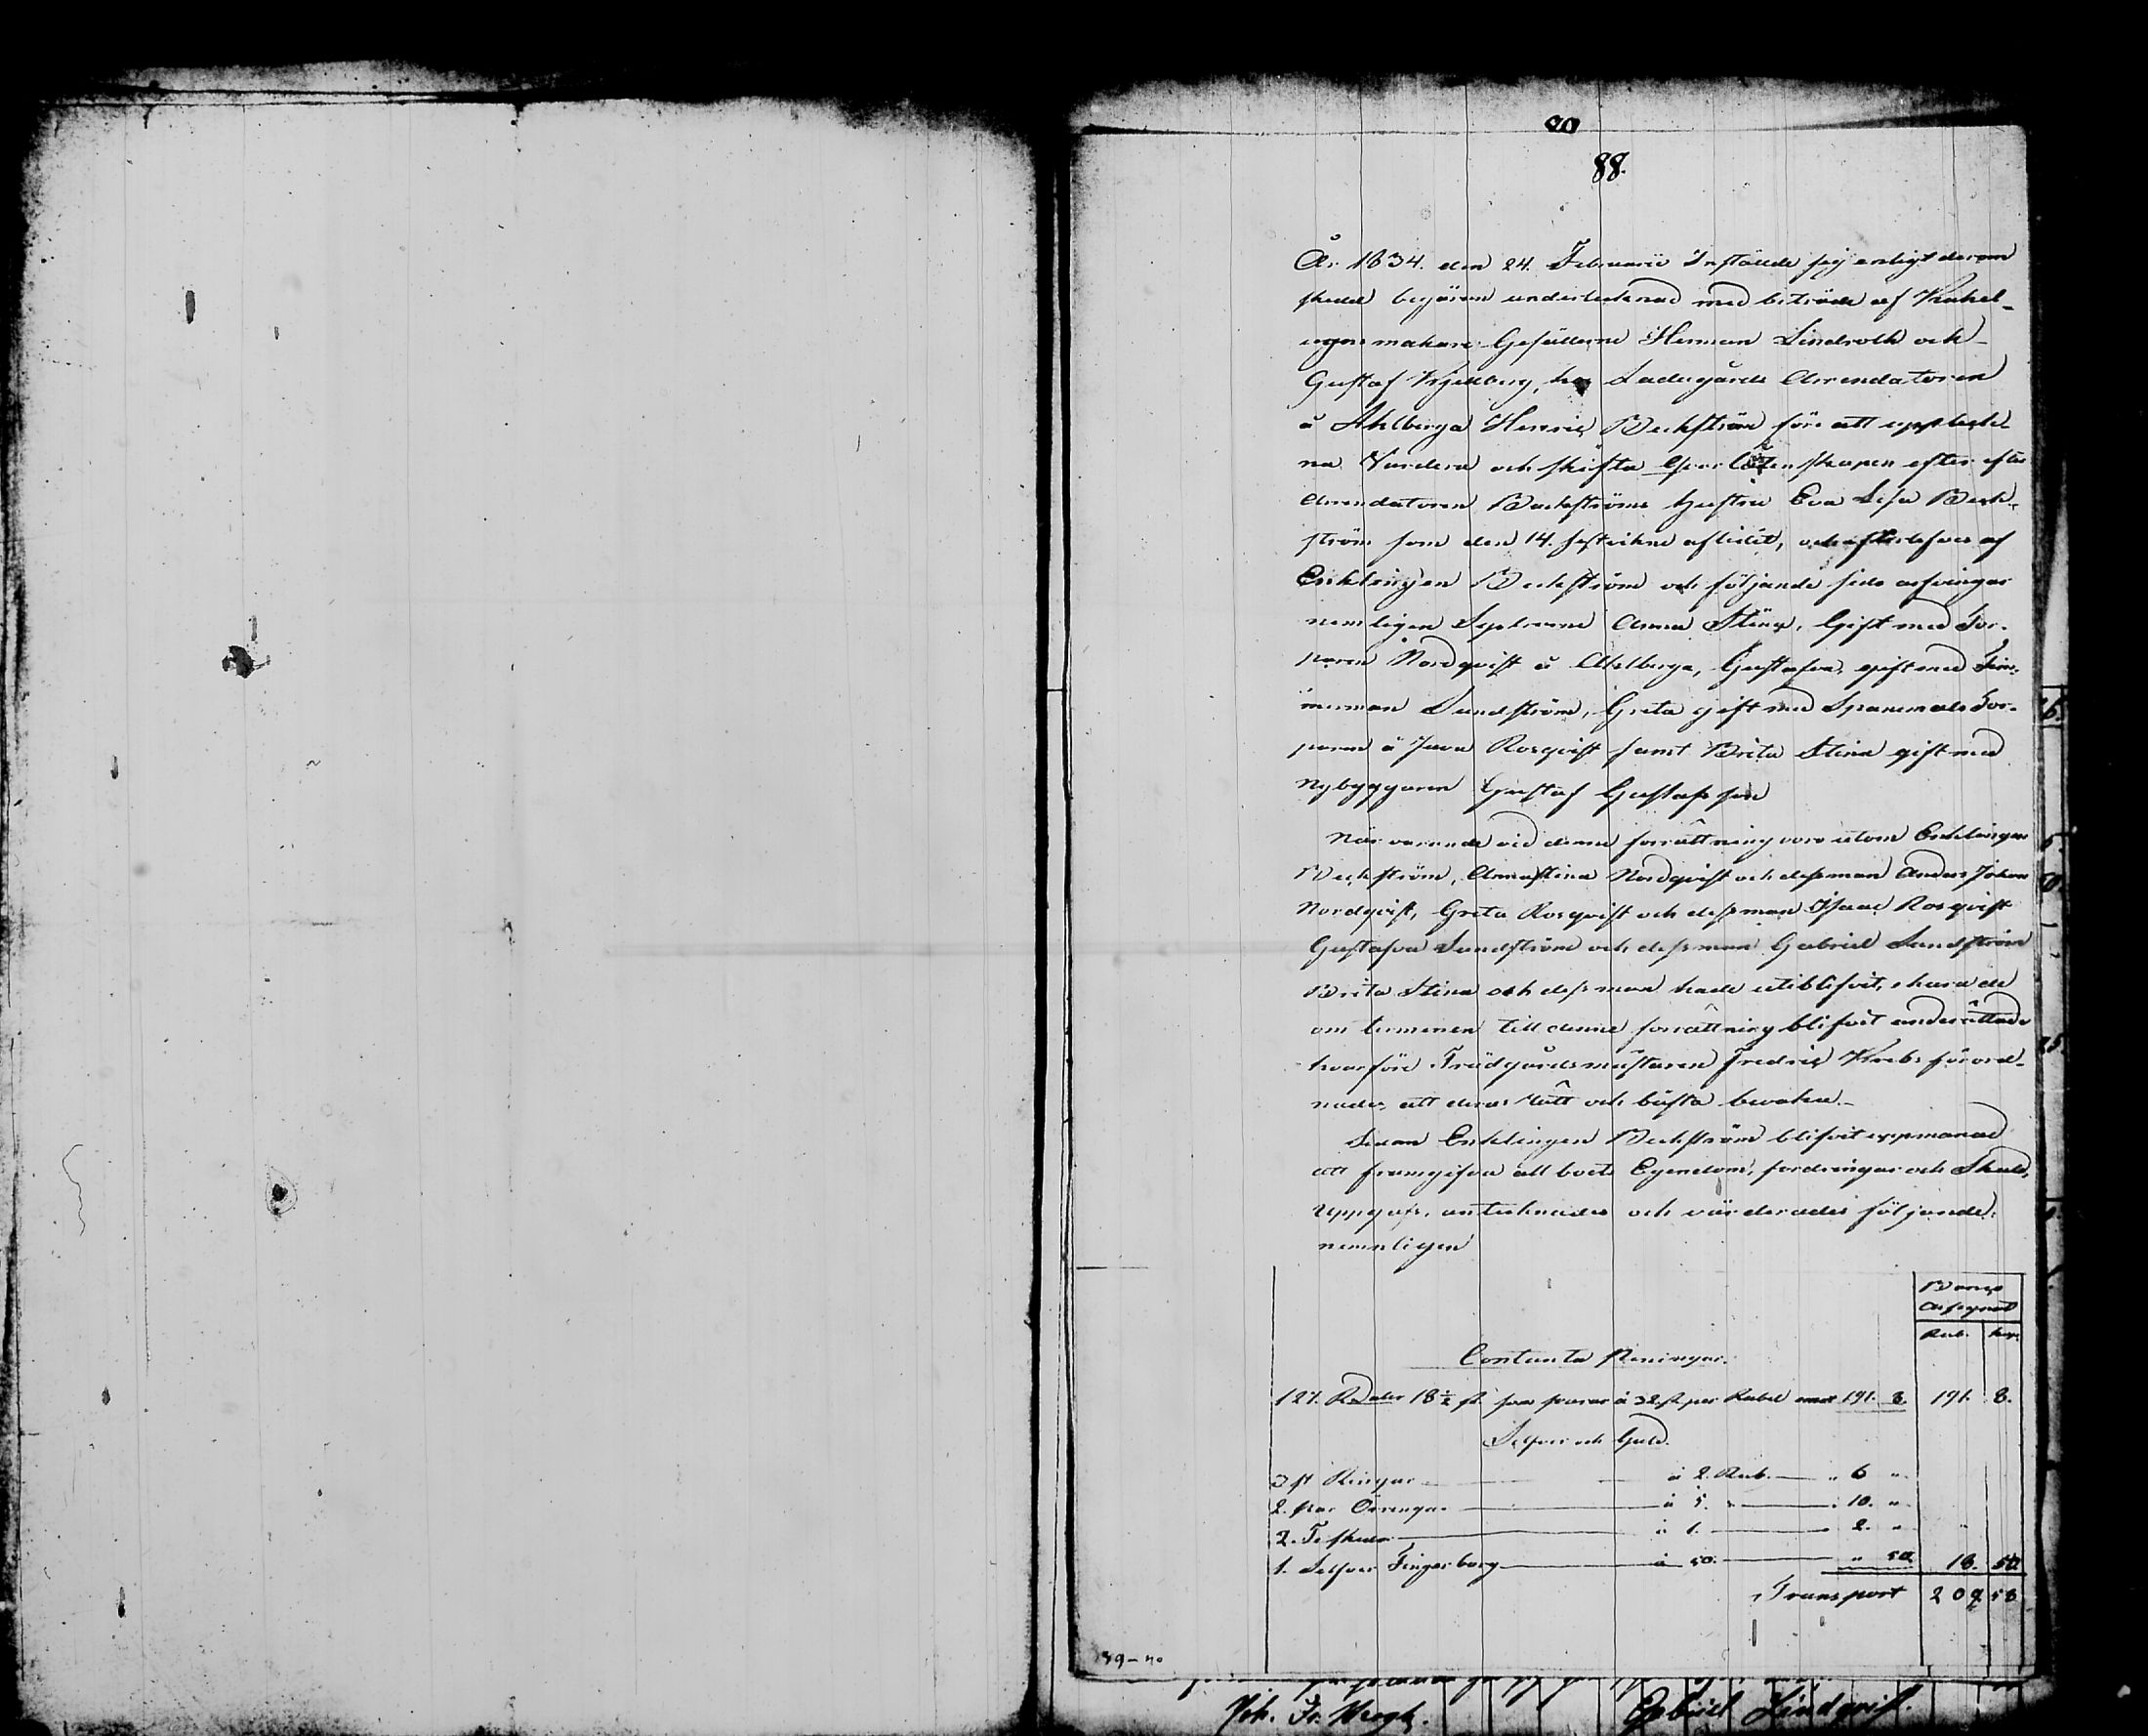 90
88.
År 1834. den 24. Februarii Instälde sig enligt derom
skedd begäran undertecknad med biträde af Kakel-
ugnsmakare Gesällerne Herman Lindroth och
Gustaf Kjellberg, hos Ladugårds Arrendatoren
å Ahlberga Henric Beckström före att uppteck
na Värdera och skifta qvarlåtenskapen efter
Arrendatoren Beckströms hustru Eva Lisa Beck-
ström som den 14. sistledne aflidit, och efterlefves af
Enklingen Beckström och följande sido arfvingar
nemligen Systrarne Anna Stina, Gift med Tor-
paren Nordqvist å Ahlberga, Gustafva, gift med Tim-
merman Sundström, Greta gift med Torp-
paren å Rosqvist samt Brita Stina gift med
Nybyggaren Gustaf Gustafsson
Närvarande vid denne förrättning voro utom Enklingen
Beckström, Annastina Nordqvist och dess man Anders Johan
Nordqvist, Greta Rosqvist och dess man Isaac Rosqvist
Gustafva Sundström och dess man Gabriel Sundström
Brita Stina och dess man hade utiblifvit, ehuru de
om terminen till denne förrättning blifvit underrättade
hvarföre Trädgårdsmästaren Fredric Krebs förord-
nades, att deras rätt och bästa bevaka.
Sedan Enklingen Beckström blifvit uppmanad
att framgifva all boets Egendom, fordringar och Skuld,
uppgafs, antecknades och värderades följande,
nemnligen
Banco
Assignat
Rub. kop.
Contanta Peningar.
127. Rdaler 18½ st som svarar à 32 st per Rubel 191. 8. 191. 8.
Selfver och Guld.
3 st Ringar à 2. Rub. " 6 "
2. par Örringar à 5. " 10. "
2. Teskedar à 1. 2. "
1. Selfver Fingerborg à 50. " 50 18. 50
Transport 209 58
39-40
Joh. Fr. Krogh.
Gabriel Lindqvist.